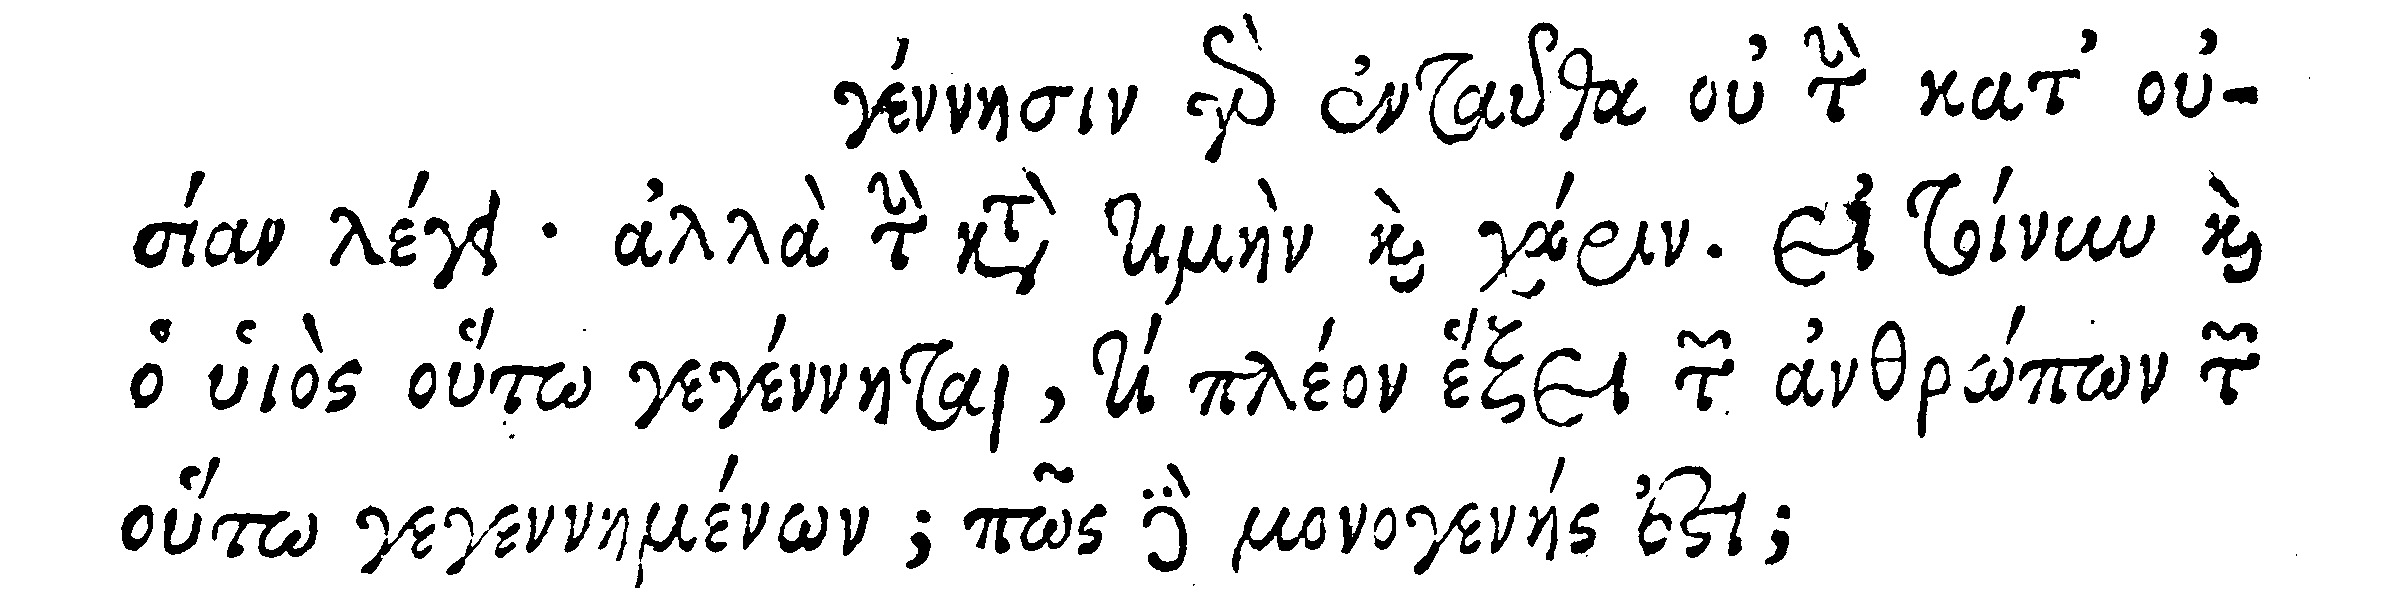 γέννησιν γὰρ ἐνταῦθα οὐ τὴν κατ' οὐ-
σίαν λέγει · ἀλλὰ τὴν κατὰ τιμὴν καὶ χάριν. εἰ τοίνυν καὶ
ὁ υἱὸς οὕτω γεγέννηται, τί πλέον ἕξει τῶν ἀνθρώπων τῶν
οὕτω γεγεννημένων; πῶς δὲ μονογενής ἐστι;